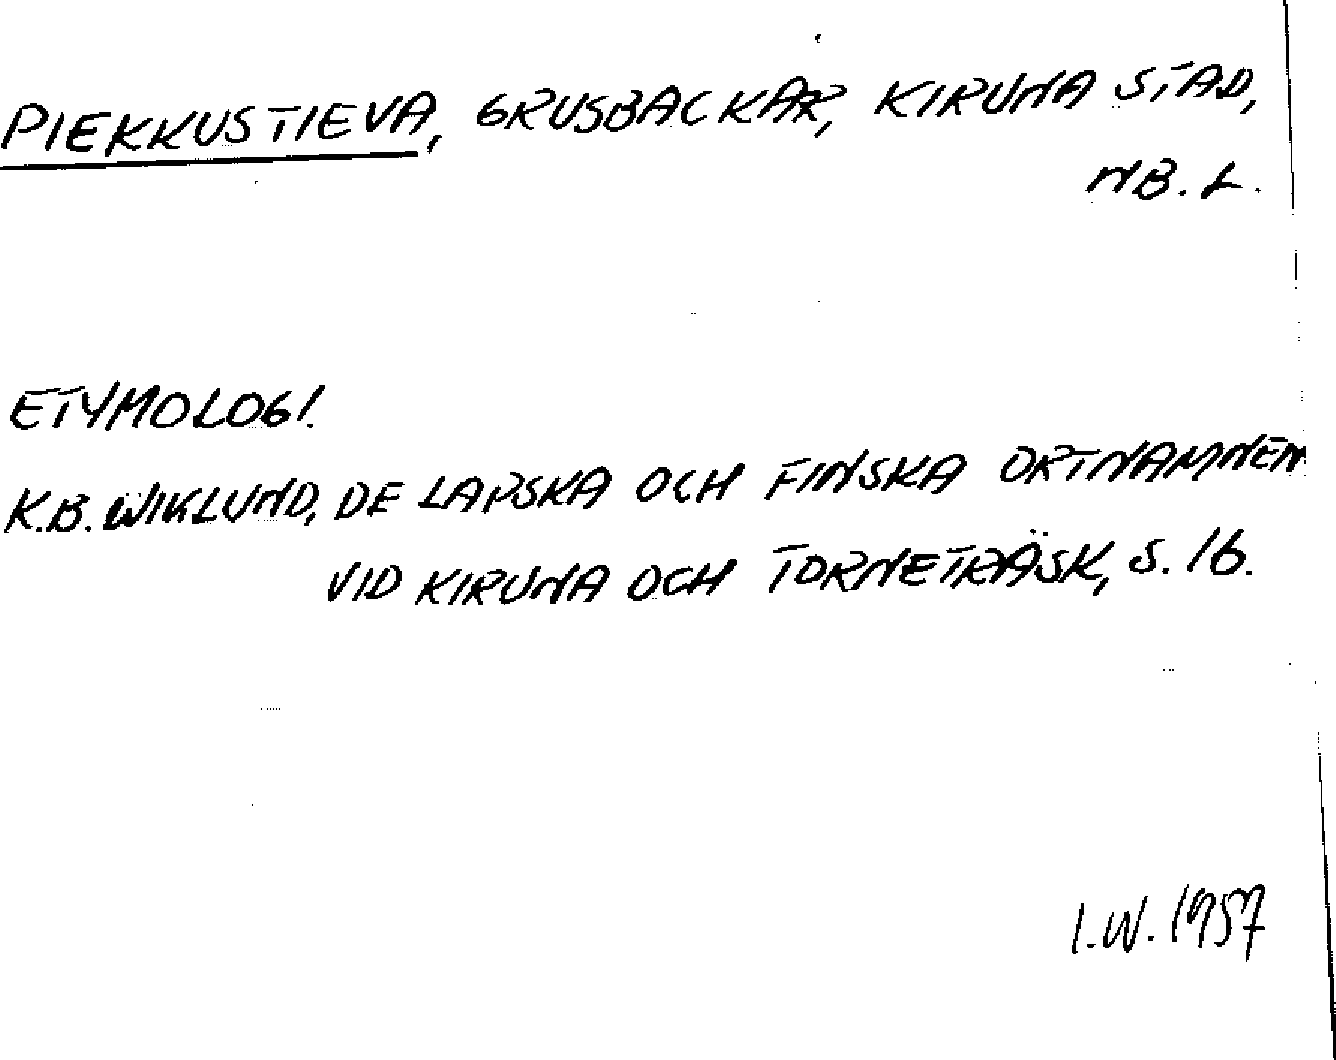 PIEKKUSTIEVA, GRUSBACKAR, KIRUNA STAD,
NB. L.
ETYMOLOGI.
K.B. WIKLUND, DE LAPSKA OCH FINSKA ORTNAMNEN
VID KIRUNA OCH TORNETRÄSK, S. 16.
I.W. 1957